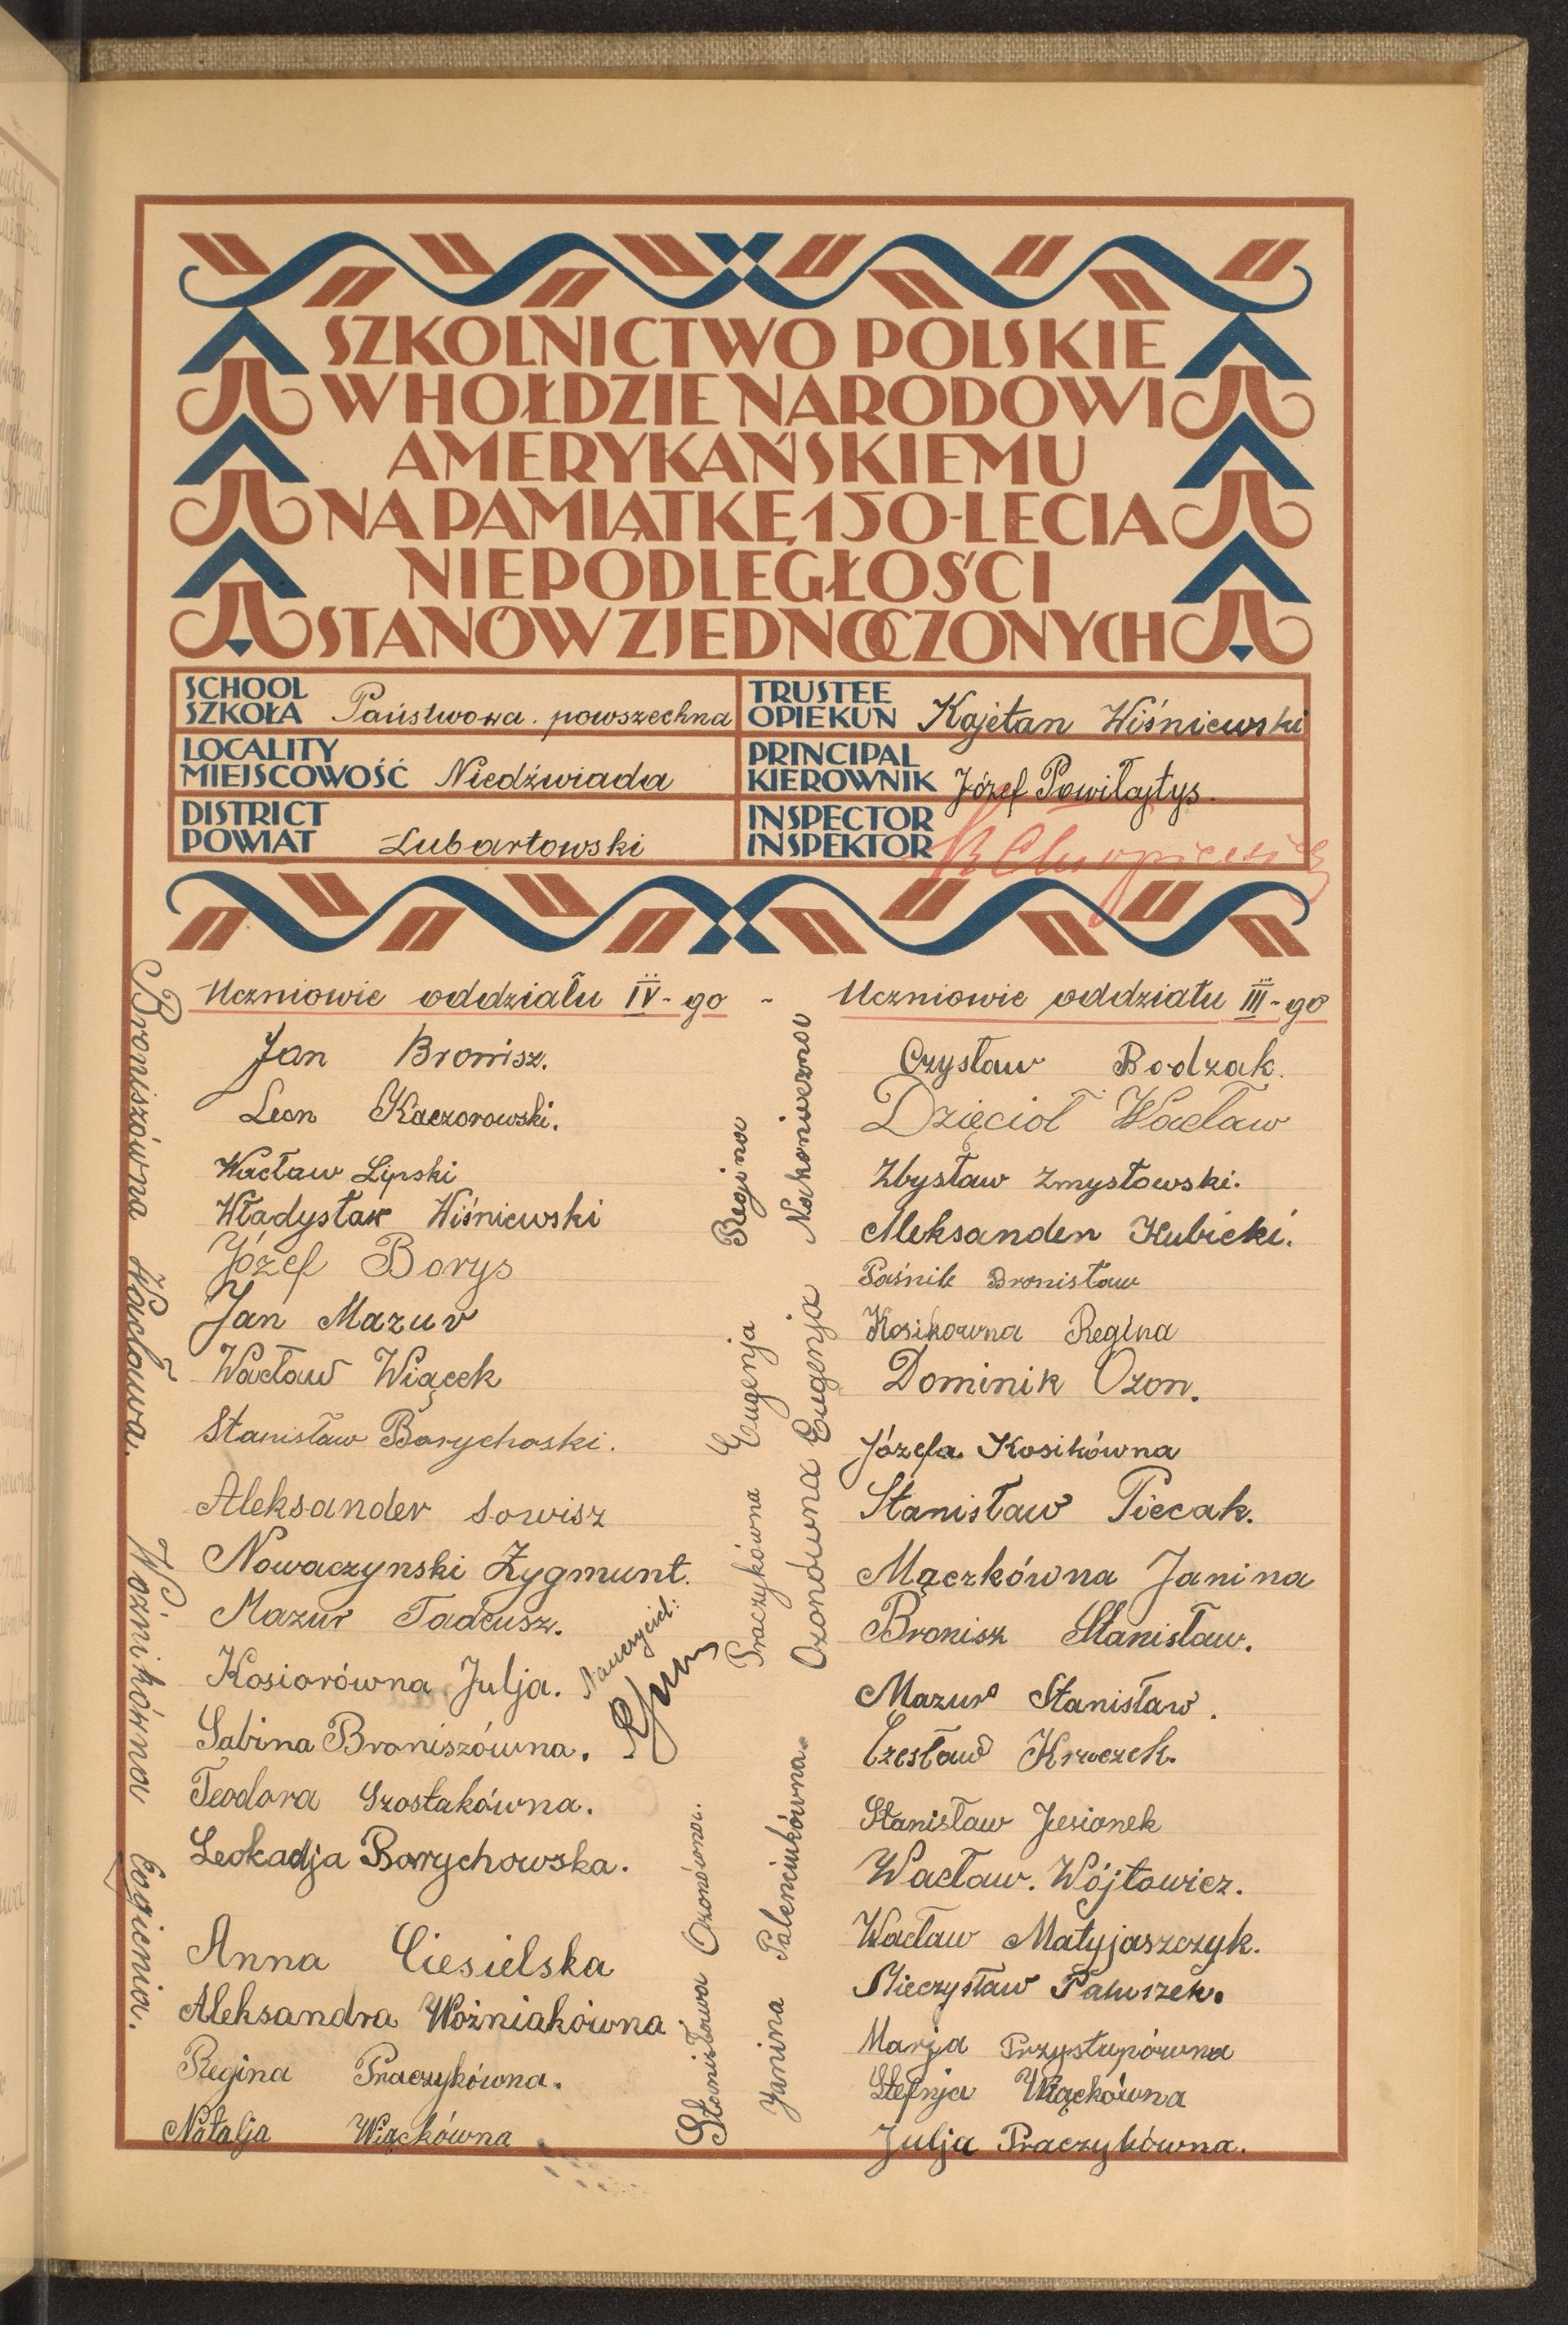 SZKOLNICTWO POLSKIE
W HOŁDZIE NARODOWI
AMERYKAŃSKIEMU
NA PAMIĄTKĘ 150-LECIA
NIEPODLEGŁOŚCI
STANÓW ZJEDNOCZONYCH
SCHOOL
SZKOŁA Państwowa. powszechna
TRUSTEE
OPIEKUN Kajetan Wiśniewski
LOCALITY
MIEJSCOWOŚĆ Niedźwiada
PRINCIPAL
KIEROWNIK Józef Powiłajtys.
DISTRICT
POWIAT Lubartowski
INSPECTOR
INSPEKTOR
Uczniowie oddziału IV-go -
Jan Bronisz.
Leon Kaczorowski.
Wacław Lipski
Władysław Wiśniewski
Józef Borys
Jan Mazur
Wacław Wiącek
Stanisław Borychoski.
Aleksander Sowisz
Nowaczynski Zygmunt.
Mazur Tadeusz.
Kosiorówna Julja.
Sabina Broniszówna.
Teodora Szostakówna.
Leokadja Borychowska.
Anna Ciesielska
Aleksandra Woźniakówna
Regina Praczykówna.
Natalja Wiąckówna
Broniszówna Wacława.
Woźnikówna Eogienia.
Nauczyciel:
Praczykówna Eugenja
Regina Nakonieczna
Ozonówna Eugenja
Stanisława Ozonówna.
Janina Palenciukówna.
Uczniowie oddziału III-go
Czysław Bodzak.
Dzięcioł Wacław
Zbysław Zmysłowski.
Aleksander Kubicki.
Paśnik Bronisław
Kosikowna Regina
Dominik Ozon.
Józefa Kosikówna
Stanisław Piecak.
Mączkówna Janina
Bronisz Stanisław.
Mazur Stanisław.
Czesław Kruczek.
Stanisław Jesionek
Wacław. Wójtowicz.
Wacław Matyjaszczyk.
Mieczysław Paluszek.
Marja Przystupówna
Stefnja Wiąckówna
Julja Praczykówna.